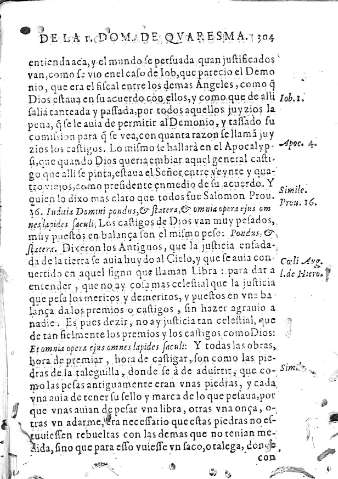 DE LA 1. DOM. DE QVARESMA. 304
entienda aca, y el mundo se persuada quan justificados
van, como se vio en el caso de Iob, que parecio el Demo
nio, que era el fiscal entre los demas Angeles, como q̃
Dios estaua en su acuerdo con ellos, y como que de alli
salia tanteada y passada, por todos aquellos juyzios la
pena, q̃ se le auia de permitir al Demonio, y tassado su
comision para q̃ se vea, con quanta razon se llamã juy
zios los castigos. Lo mismo se hallarà en el Apocalyp
si, que quando Dios queria embiar aquel general casti-
go que alli se pinta, estaua el Señor entre veynte y qua-
tro viejos, como presidente en medio de su acuerdo. Y
quien lo dixo mas claro que todos fue Salomon Prou.
16. Iudatia Domini pondus, & statera, & omnia opera ejus om
nes lapides saculi. Los castigos de Dios van muy pesados,
muy puestos en balança son el mismo peso: Pondus, &
statera. Dixeron los Antiguos, que la justicia enfada-
da de la tierra se auia huydo al Cielo, y que se auia con-
uertido en aquel signo que llaman Libra: para dar a
entender, que no ay cosa mas celestial que la justicia
que pesa los meritos y demeritos, y puestos en vna ba-
lança da los premios o castigos, sin hazer agrauio a
nadie. Es pues dezir, no ay justicia tan celestial, que
de tan fielmente los premios y los castigos como Dios:
Et omnia opera ejus omnes lapides saculi: Y todas las obras,
hora de premiar, hora de castigar, son como las pie-
dras de la taleguilla, donde se á de aduirtir, que co-
mo las pesas antiguamente eran vnas piedras, y cada
vna auia de tener su sello y marca de lo que pesaua, por
que vnas auian de pesar vna libra, otras vna onça, o-
tras vn adarme, era necessario que estas piedras no es-
tuuiessen rebueltas con las demas que no tenian me-
dida, sino que para esso vuiesse vn saco, o talega, donde
con
Iob. 1.
Apoc. 4.
Simile.
Prou. 16.
Cœli Aug
l. de Hiero.
Sim